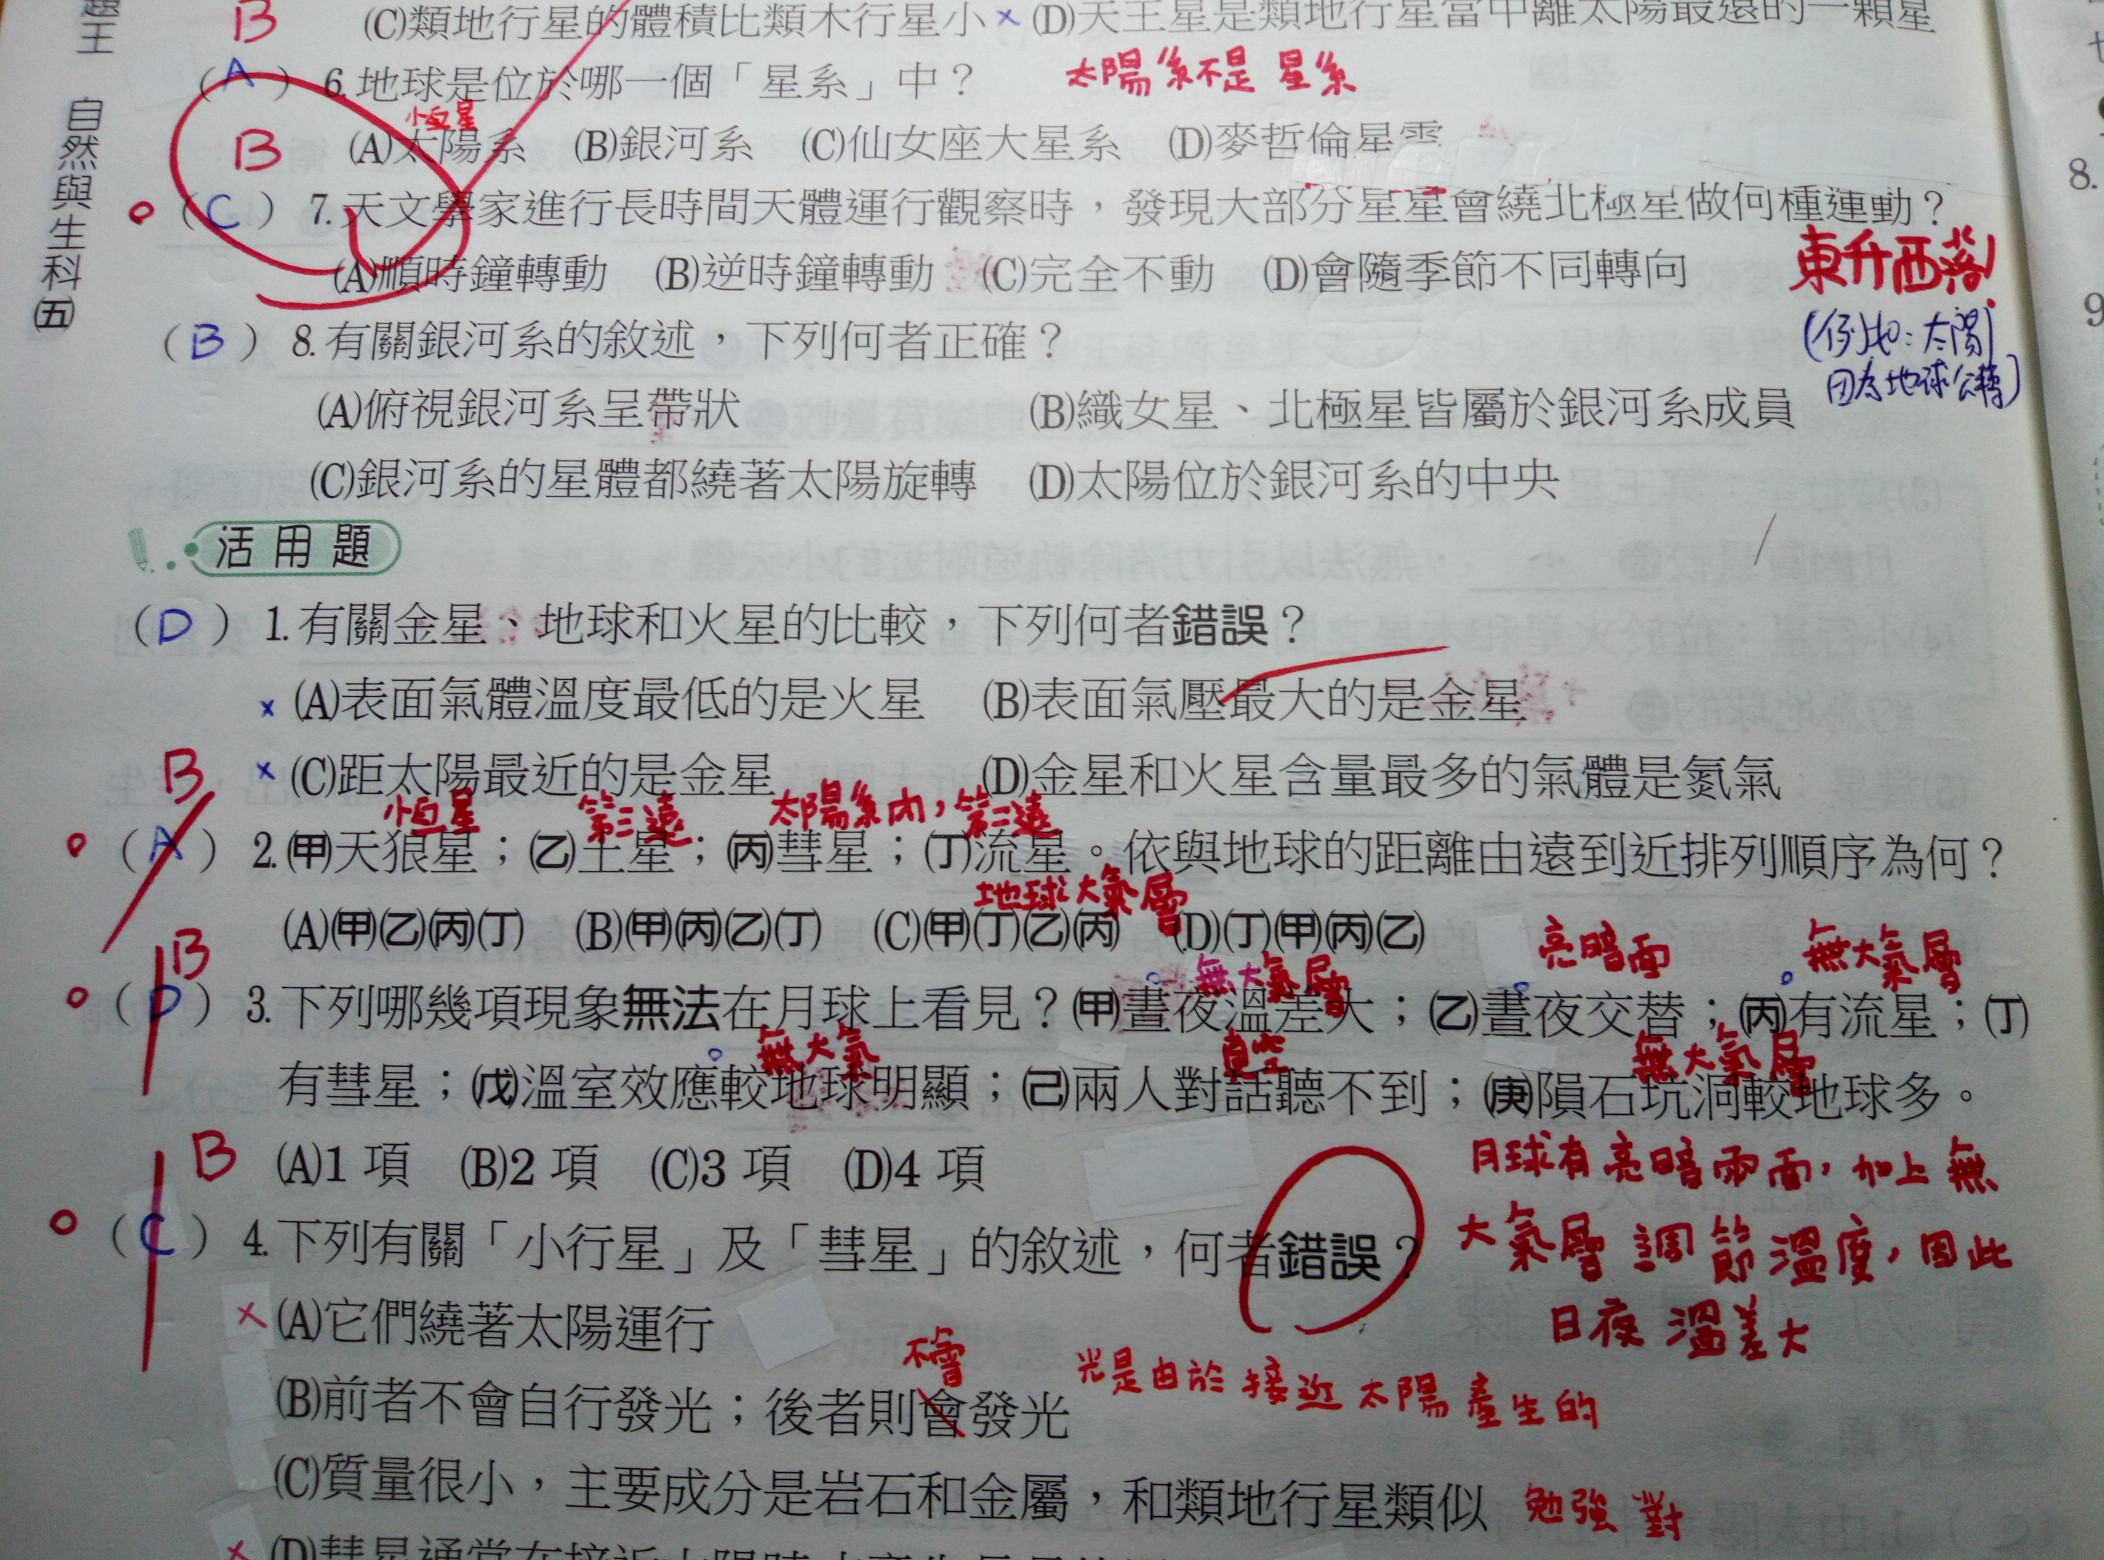 B (C)類地行星的體積比類木行星小×(D)天王星是類地行星當中離太陽最遠的一顆星
自然與生科(五)
(A) 6.地球是位於哪一個「星系」中? 太陽系不是星系
恒星
B (A)太陽系 (B)銀河系 (C)仙女座大星系 (D)麥哲倫星雲
(C) 7.天文學家進行長時間天體運行觀察時,發現大部分星星會繞北極星做何種運動?
(A)順時鐘轉動 (B)逆時鐘轉動 (C)完全不動 (D)會隨季節不同轉向
東升西落
(B) 8.有關銀河系的敘述,下列何者正確?
(例)地:太陽
因為地球公轉)
(A)俯視銀河系呈帶狀 (B)織女星、北極星皆屬於銀河系成員
(C)銀河系的星體都繞著太陽旋轉 (D)太陽位於銀河系的中央
活用題
(D) 1.有關金星、地球和火星的比較,下列何者錯誤?
×(A)表面氣體溫度最低的是火星 (B)表面氣壓最大的是金星
×(C)距太陽最近的是金星 (D)金星和火星含量最多的氣體是氮氣
B
恒星 第三遠 太陽系內,第二遠
(A) 2.(甲)天狼星;(乙)土星;(丙)彗星;(丁)流星。依與地球的距離由遠到近排列順序為何?
地球大氣層
(A)(甲)(乙)(丙)(丁) (B)(甲)(丙)(乙)(丁) (C)(甲)(丁)(乙)(丙) (D)(丁)(甲)(丙)(乙)
B 無大氣層 亮暗面 無大氣層
(D) 3.下列哪幾項現象無法在月球上看見?(甲)晝夜溫差大;(乙)晝夜交替;(丙)有流星;(丁)
無大氣 真空 無大氣層
有彗星;(戊)溫室效應較地球明顯;(己)兩人對話聽不到;(庚)隕石坑洞較地球多。
B (A)1 項 (B)2 項 (C)3 項 (D)4 項
月球有亮暗兩面,加上無
大氣層調節溫度,因此
日夜溫差大
(C) 4.下列有關「小行星」及「彗星」的敘述,何者錯誤?
×(A)它們繞著太陽運行
不會
(B)前者不會自行發光;後者則會發光 光是由於接近太陽產生的
(C)質量很小,主要成分是岩石和金屬,和類地行星類似 勉強對
×(D)彗星通常在接近太陽時
8.
9